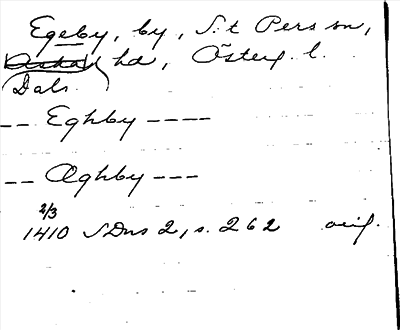 Egeby, by, S:t Per s sn,
Aska hd, Österg. l.
Dals
-- Eghby ----
-- Æghby ---
2/3
1410 SDns 2, s. 262 orig.